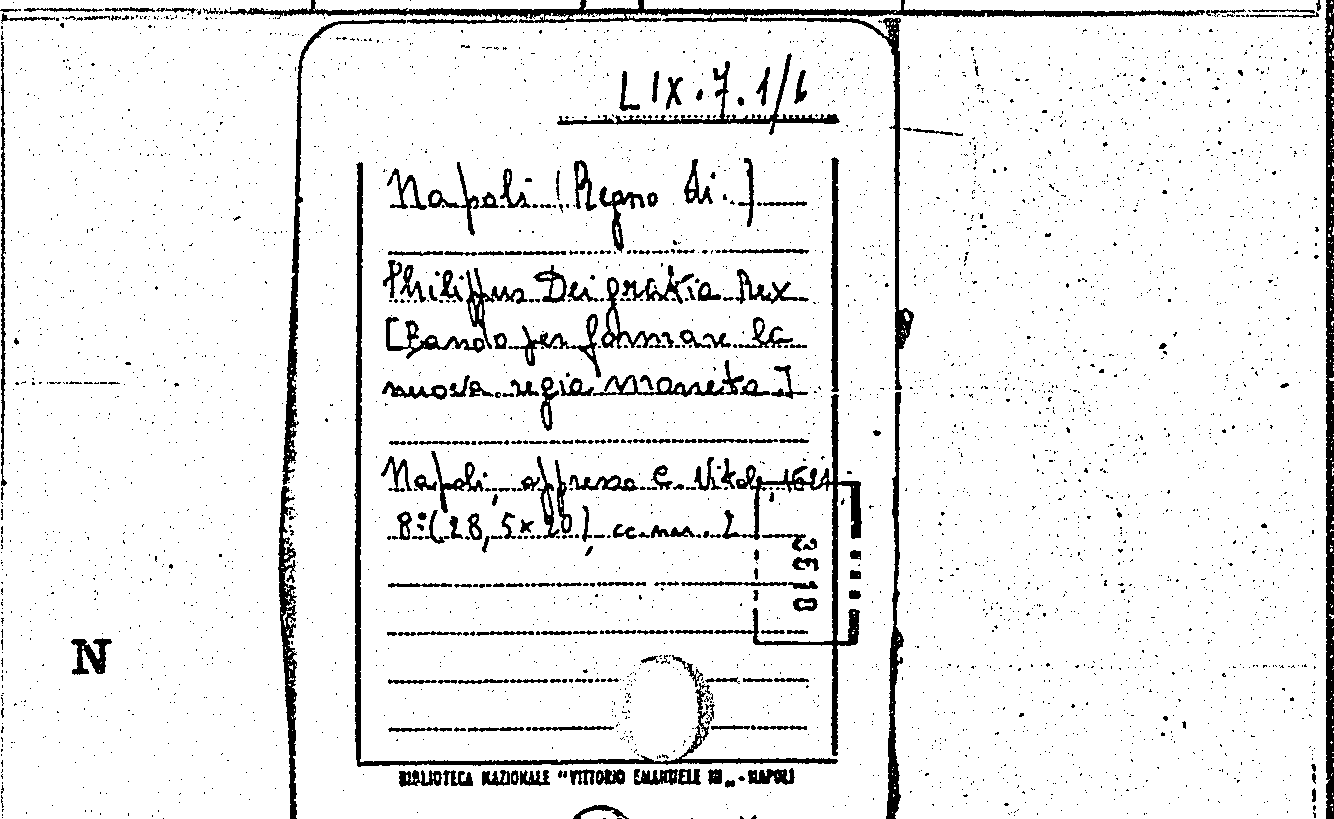 LIX.7.1/6
Napoli (Regno di.)
Philippus Dei gratia Rex
[Bando per formare la
nuova regia moneta]
Napoli, appresso C. Vitale,
8º (28,5×20), cc. nn. 2
3610
N
BIBLIOTECA NAZIONALE "VITTORIO EMANUELE III„ - NAPOLI